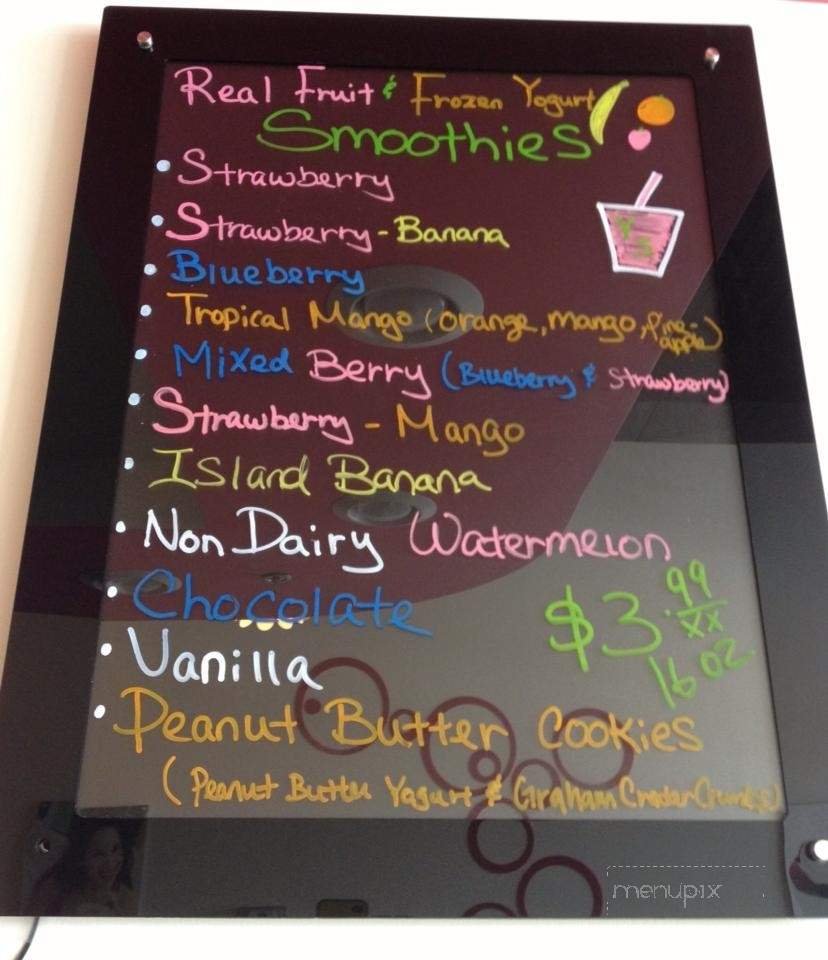 Real Fruit & Frozen Yogurt
Smoothies
• Strawberry
• Strawberry - Banana
• Blueberry
• Tropical Mango (orange, mango, pine-apple)
• Mixed Berry (Blueberry & Strawberry)
• Strawberry - Mango
• Island Banana
• Non Dairy Watermelon
• Chocolate
$3.99
xx
16 oz.
• Vanilla
• Peanut Butter Cookies
(Peanut Butter Yogurt & Graham Cracker Crumbs)
menupix